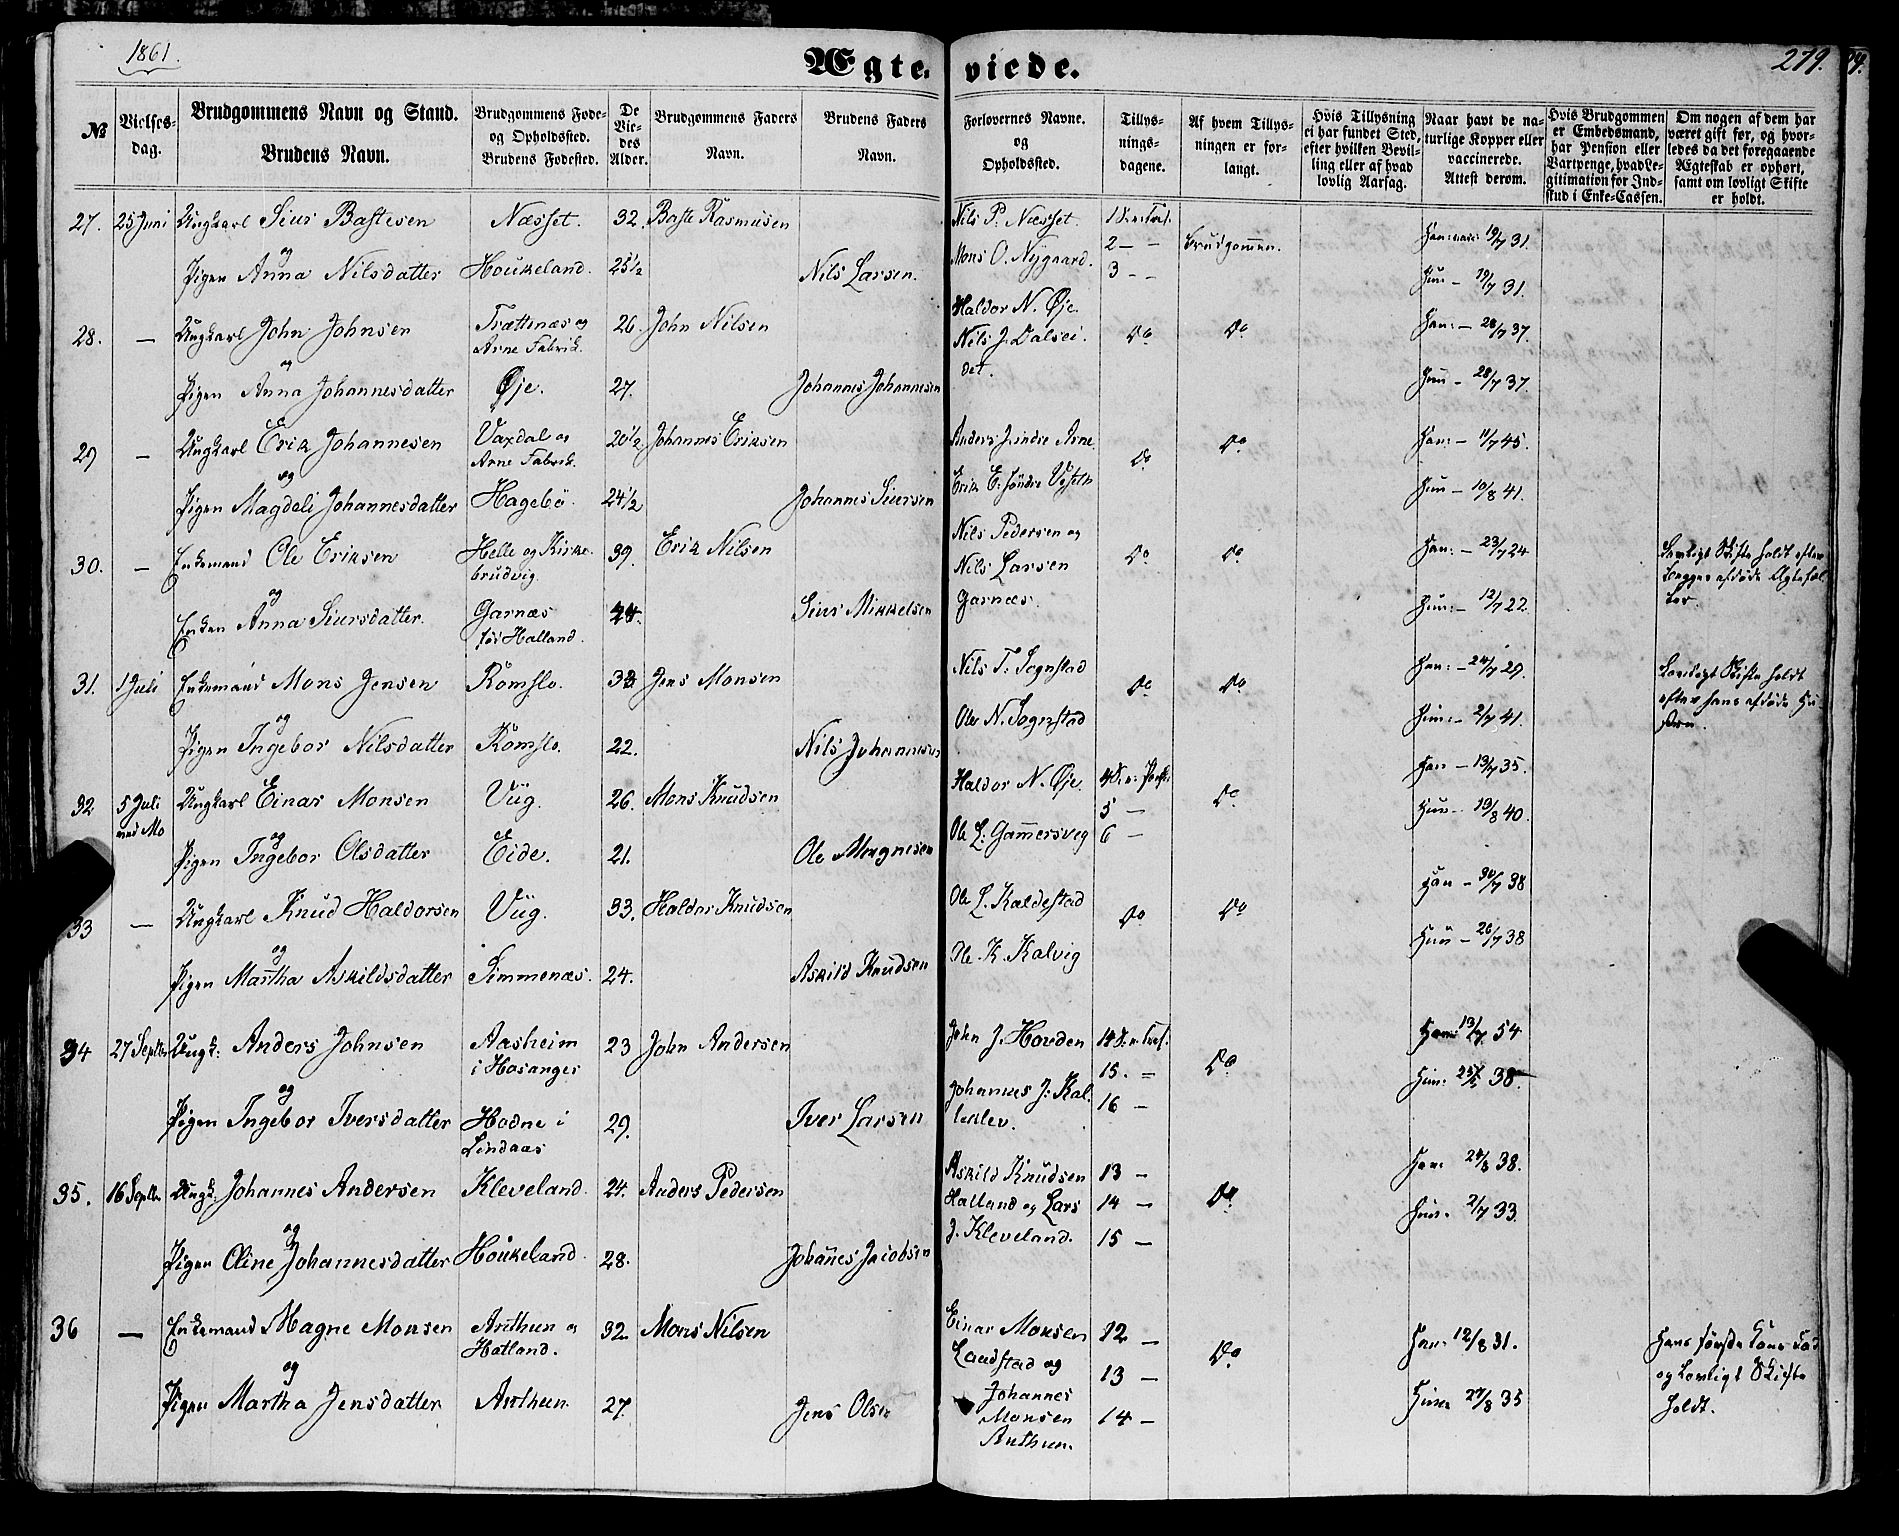 1861.
Ægteviede.
279.
№
Vielses-dag.
Brudgommens Navn og Stand.
Brudens Navn.
Brudgommens Føde- og Opholdssted.
Brudens Fødested.
De Viedes Alder.
Brudgommens Faders Navn.
Brudens Faders Navn.
Forlovernes Navne. og Opholdssted.
Tillysningsdagene.
Af hvem Tillysningen er forlangt.
Hvis Tillysning ei har fundet Sted, efter hvilken Bevilling eller af hvad lovlig Aarsag.
Naar havt de naturlige Kopper eller vaccinerede. Attest derom.
Hvis Brudgommen er Embedsmand, har Pension eller Vartpenge, hvad Legitimation for Indskud i Enke-Cassen.
Om nogen af dem har været gift før, og hvorledes da det foregaaende Ægteskab er ophørt, samt om lovligt Skifte er holdt.
27. 25 Juni Ungkarl Siur Bastesen Næsset. 32. Baste Rasmusen Nils P. Næsset 1 S. e. Tref. Brudgommen. Han: vacc: 19/7 31.
og Mons O. Nygaard. 2 — —
Pigen Anna Nilsdatter Houkeland. 25 1/2 Nils Larsen. 3 — — Hun — 19/7 31.
28. — Ungkarl John Johnsen Trættenæs og Arne Fabrik. 26. John Nilsen Haldor N. Øje. Do Do Han: — 28/7 37.
og Nils J. Dalseidet.
Pigen Anna Johannesdatter Øje. 27. Johannes Johannesen Hun — 28/7 37.
29 — Ungkarl Erik Johannesen Vaxdal og Arne Fabrik. 20 1/2 Johannes Eriksen Anders Jindre Arne Do Do Han: — 11/7 45.
og
Pigen Magdeli Johannesdatter Hagebö. 24 1/2 Johannes Siursen Erik E: söndre Hun — 10/8 41.
30. — Enkemand Ole Eriksen Helle og Kirkebrudvig. 39. Erik Nilsen Nils Pedersen og Do Do Han: — 23/7 24 Lovligt Skifte holdt efter begges afdøde Ægtefæller.
og Nils Larsen
Enken Anna Siursdatter. Garnæs för Halland. 44. Siur Mikkelsen Garnæs. Hun: — 12/7 22.
31. 1 Juli Enkemand Mons Jensen Romslo. 33 Jens Monsen Nils T. Sognstad Do Do Han: — 24/7 29. Lovligt Skifte holdt efter hans afdøde Hustru.
og
Pigen Ingebor Nilsdatter Romslo. 22. Nils Johannesen Ole N. Sognstad Hun: — 2/7 41.
32 5 Juli Ungkarl Einar Monsen Viig. 26. Mons Knudsen Haldor N. Øje. 4 S. e. Do Han — 19/7 35.
og 5 —
Pigen Ingebor Olsdatter Eide. 21. Ole Magnesen Ole L: Gammersveg 6 — Hun — 19/8 40.
33 — Ungkarl Knud Haldorsen Viig. 33. Haldor Knudsen Ole L. Kaldestad Do Do Han — 30/7 38
og
Pigen Martha Askildsdatter Simmenæs. 24. Askild Knudsen Ole K. Kalvig Hun — 26/7 38
34 27 Septbr Ungk: Anders Johnsen Aasheim i Hosanger 23 John Andersen John J. Hovden 14 S. e. Tref. Do Han 13/7 54
og 15. —
Pigen Ingebor Iversdatter Hodne i Lindaas 29. Iver Larsen Johannes J: 16 — Hun. 38.
35. 16 Septbr Ungk. Johannes Andersen Kleveland. 24. Anders Pedersen Askild Knudsen 13 — Do Han 24/8 38.
og Halland og Lars 14 —
Pigen Oline Johannesdatter Houkeland 28. Johannes Jacobsen J. Kleveland. 15 — Hun. 2/7 33.
36 — Enkemand Magne Monsen Arnthun og Hatland. 32 Mons Nilsen Einar Monsen 12 — Do Han 12/8 31. Hans første Kone død og Lovligt Skifte holdt.
og Landstad og 13 —
Pigen Martha Jensdatter Arnthun 27. Jens Olsen Johannes Monsen Arnthun. 14 — Hun 27/8 35